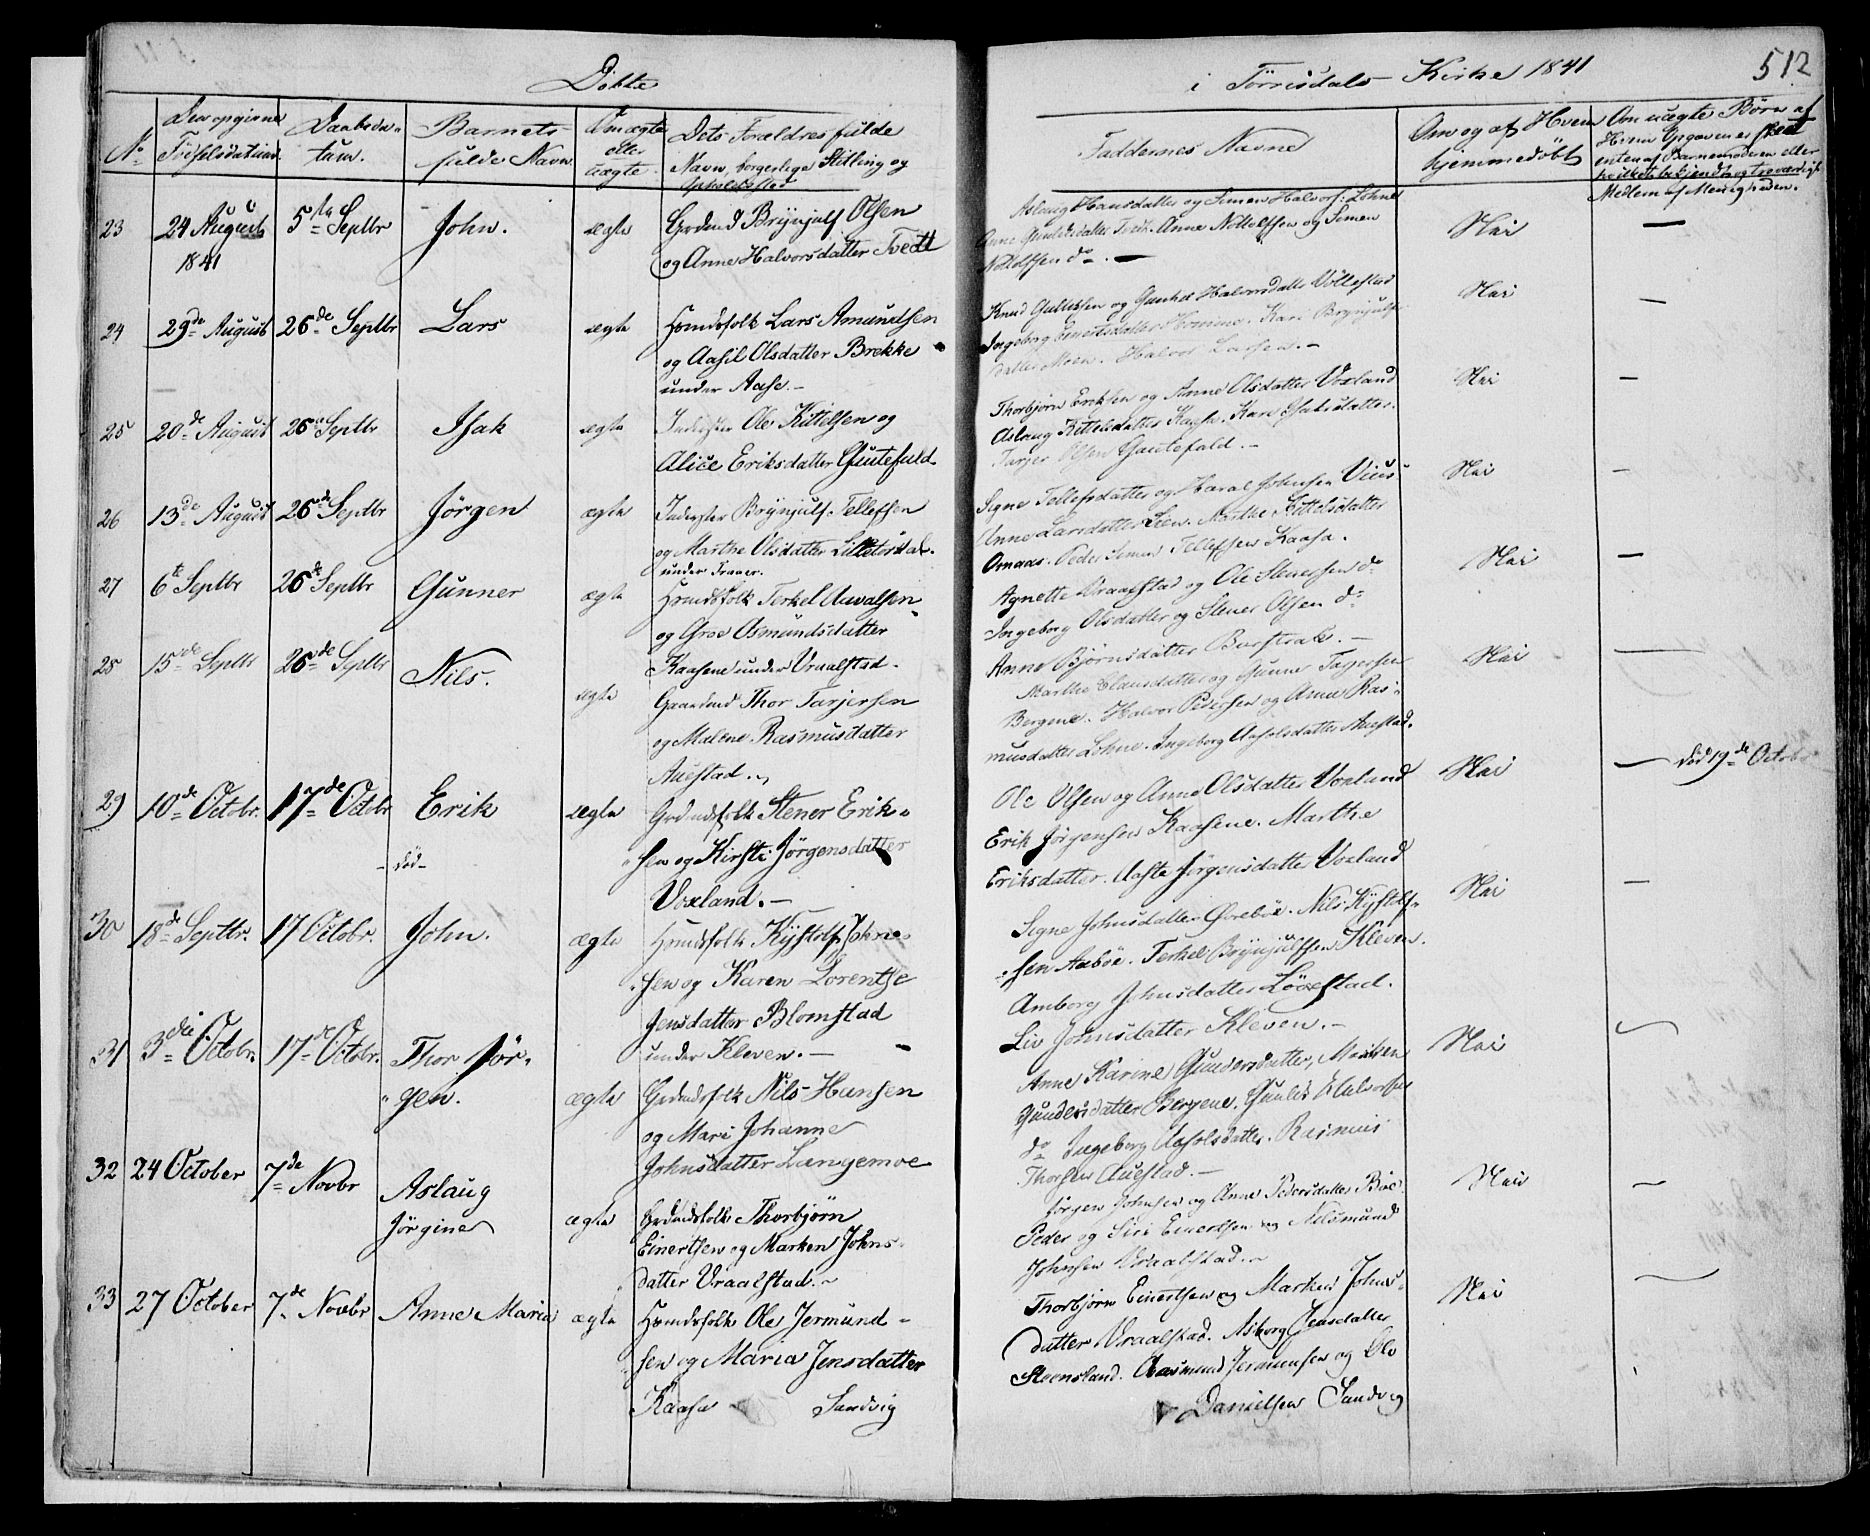 Döbte i Törrisdals Kirke 1841
512
No
Den opgivne Födselsdatum.
Daabsdatum.
Barnets fulde Navn.
Om ægte eller uægte.
Dets Forældres fulde Navn, borgerlige Stilling og Opholdssted
Faddernes Navne
Om og af Hvem hjemmedöbt
Om uægte Börn af Hvem Opgaven er skeet enten af Barnemoderen eller hvilket bekjendt og troværdigt Medlem af Menigheden.
23
24 August 1841
5te Septbr
John.
ægte
Grdmd Brynjulf Olsen
og Anne Halvorsdatter Tvedt
Aslaug Hansdatter og Simen Halvors: Lohne
Tvedt. Anne Nottolfsen og Simen
Nottolfsen do. —
Nei
—
24
29de August
26de Septbr
Lars
ægte
Hsmdsfolk Lars Amundsen
og Aasil Olsdatter Brekke
under Aase. —
Knud Gulliksen og Gunhil Halvorsdatter Völlestad
Ingeborg Kari Brynjulfs
datter Moen. Halvor Larsen. —
Nei
—
25
20de August
26de Septbr
Isak
ægte
Inderster Ole Kittelsen og
Alice Eriksdatter Gautefald
Thorbjörn Eriksen og Anne Olsdatter Voxland
Aslaug Kittelsdatter Kaasa. Kari Isaksdatter.
Tarjer Olsen Gautefald. —
Nei
—
26
13de August
26de Septbr
Jörgen
ægte
Inderster Brynjulf Tellefsen
og Marthe Olsdatter Lilletorsdal.
under Traaer.
Signe Tellefsdatter og Haral Johnsen Vius
Anne Larsdatter Lien. Marthe Kittelsdatter
Omaas. Peder Simen Tellefsen Kaasa.
Nei
—
27
6te Septbr
26de Septbr
Gunner
ægte
Hsmdsfolk Terkel Auvalsen
og Groe Osmundsdatter
Kaasene under Vraalstad.
Agnette Vraalstad og Ole Stenersen do
Ingeborg Olsdatter og Stener Olsen do
Anne Björnsdatter Barstrak. —
Nei
—
28
15de Septbr
26de Septbr
Nils.
ægte
Gaardmd Thor Tarjersen
og Malene Rasmusdatter
Auestad.
Marthe Clausdatter og Gunne Tarjersen
Bergene. Halvor Pedersen og Anne Ras-
musdatter Lohne. Ingeborg Aasolsdatter Auestad.
Nei
—
29
10de Octobr.
17de Octobr
Erik
- död -
ægte
Grdmdsfolk Stener Erik-
sen og Kirsti Jörgensdatter
Voxland. —
Ole Olsen og Anne Olsdatter Voxland
Erik Jörgensen Kaasene. Marthe
Eriksdatter. Aaste Jörgensdatter Voxland
Nei
— död 19de Octobr
30
18de Septbr.
17 Octobr.
John.
ægte
Hsmdsfolk Kystolf John-
sen og Karen Lorentse
Jensdatter Blomstad
under Kleven. —
Signe Johnsdatter Öreböe. Nils Kystolf-
sen Aaböe. Terkel Brynjulfsen Kleven.
Amborg Johnsdatter Lövestad.
Liv Johnsdatter Kleven. —
Nei
—
31
3die Octobr.
17de Octobr.
Thor Jör-
gen.
ægte
Grdmdsfolk Nils Hansen
og Mari Johanne
Johnsdatter Langemoe
Anne Karine Gundersdatter, Marken
Gundersdatter Bergene. Gunles Halvorsen
do Ingeborg Aasolsdatter. Rasmus
Thorsen Auestad. —
Nei
—
32
24 October
7de Novbr
Aslaug
Jörgine
ægte
Grdmdsfolk Thorbjörn
Einertsen og Marken Johns-
datter Vraalstad. —
Jörgen Johnsen og Anne Pedersdatter Böe
Peder og Siri Einertsen og Nilsmund
Johnsen Vraalstad. —
Nei
—
33
27 October
7de Novbr
Anne Maria
ægte
Hsmdsfolk Ole Jermund-
sen og Maria Jensdatter
Kaasa Sandvig
Thorbjörn Einertsen og Marken Johns-
datter Vraalstad. Asborg Jensdatter
Steensland. Aasmund Jermunsen og Ole
Danielsen Sandvig
Nei
—